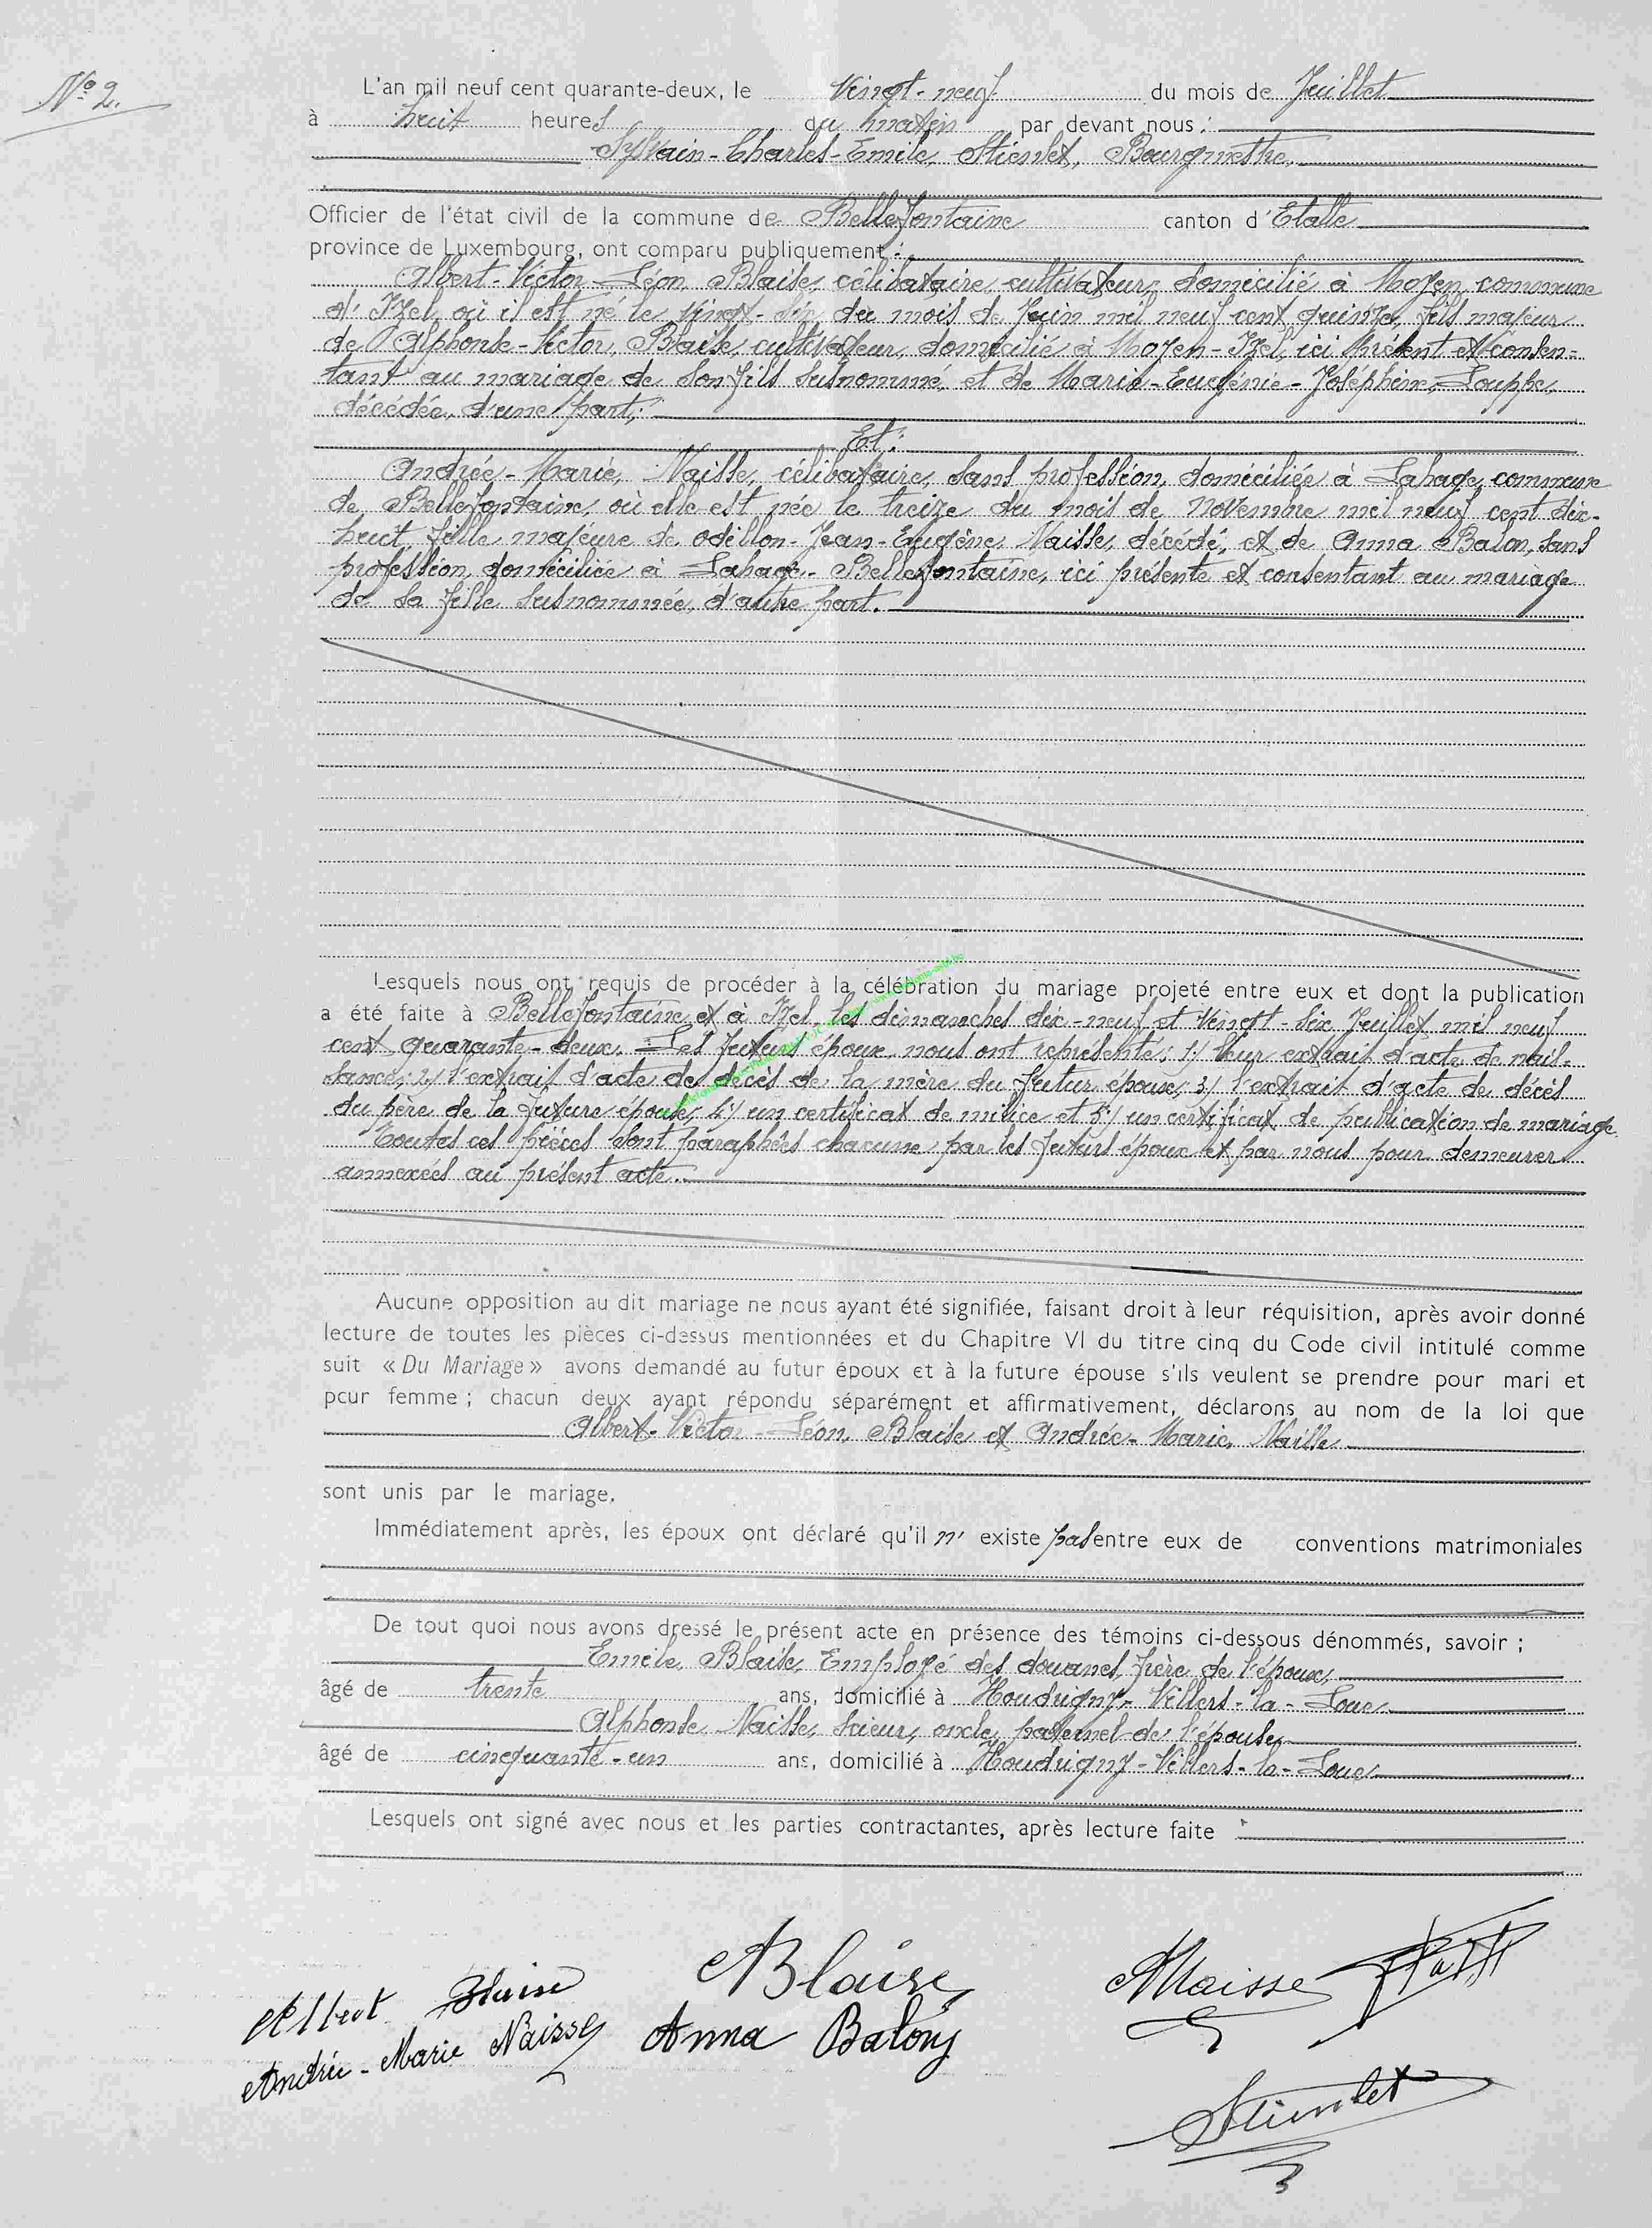 N° 2.
L'an mil neuf cent quarante-deux, le vingt-neuf du mois de Juillet
à huit heures du matin par devant nous :
Sylvain-Charles-Emile, Stienlet, Bourgmestre,
Officier de l'état civil de la commune de Bellefontaine canton d'Etalle
province de Luxembourg, ont comparu publiquement :
Albert-Victor-Léon, Blaise, célibataire, cultivateur, domicilié à Moyen, commune
d'Izel, où il est né le vingt-six du mois de Juin mil neuf cent quinze, fils majeur
de Alphonse-Victor, Blaise, cultivateur, domicilié à Moyen-Izel, ici présent et consen-
tant au mariage de son fils susnommé, et de Marie-Eugénie-Joséphine, Louppe,
décédée, d'une part;
Et :
Andrée-Marie, Naisse, célibataire, sans profession, domiciliée à Lahage, commune
de Bellefontaine, où elle est née le treize du mois de Novembre mil neuf cent dix-
huit, fille majeure de Odillon-Jean-Eugène, Naisse, décédé, et de Anna Balon, sans
profession, domiciliée à Lahage-Bellefontaine, ici présente et consentant au mariage
de sa fille susnommée, d'autre part.
Lesquels nous ont requis de procéder à la célébration du mariage projeté entre eux et dont la publication
a été faite à Bellefontaine et à Izel, les dimanches dix-neuf et vingt-six Juillet mil neuf
cent quarante-deux. Les futurs époux nous ont représenté : 1/ leur extrait d'acte de nais-
sance; 2/ l'extrait d'acte de décès de la mère du futur époux; 3/ l'extrait d'acte de décès
du père de la future épouse; 4/ un certificat de milice et 5/ un certificat de publication de mariage.
Toutes ces pièces sont paraphées chacune par les futurs époux et par nous pour demeurer
annexées au présent acte.
Aucune opposition au dit mariage ne nous ayant été signifiée, faisant droit à leur réquisition, après avoir donné
lecture de toutes les pièces ci-dessus mentionnées et du Chapitre VI du titre cinq du Code civil intitulé comme
suit « Du Mariage » avons demandé au futur époux et à la future épouse s'ils veulent se prendre pour mari et
pour femme ; chacun deux ayant répondu séparément et affirmativement, déclarons au nom de la loi que
Albert-Victor-Léon, Blaise et Andrée-Marie, Naisse
sont unis par le mariage.
Immédiatement après, les époux ont déclaré qu'il n' existe pas entre eux de conventions matrimoniales
De tout quoi nous avons dressé le présent acte en présence des témoins ci-dessous dénommés, savoir ;
Emile, Blaise, Employé des douanes, frère de l'époux,
âgé de trente ans, domicilié à Houdrigny-Villers-la-Loue
Alphonse Naisse, scieur, oncle paternel de l'épouse
âgé de cinquante-un ans, domicilié à Houdrigny-Villers-la-Loue
Lesquels ont signé avec nous et les parties contractantes, après lecture faite
ABlaise
ANaisse
Albert Blaise
Anna Balon
Andrée-Marie Naisse
Stienlet